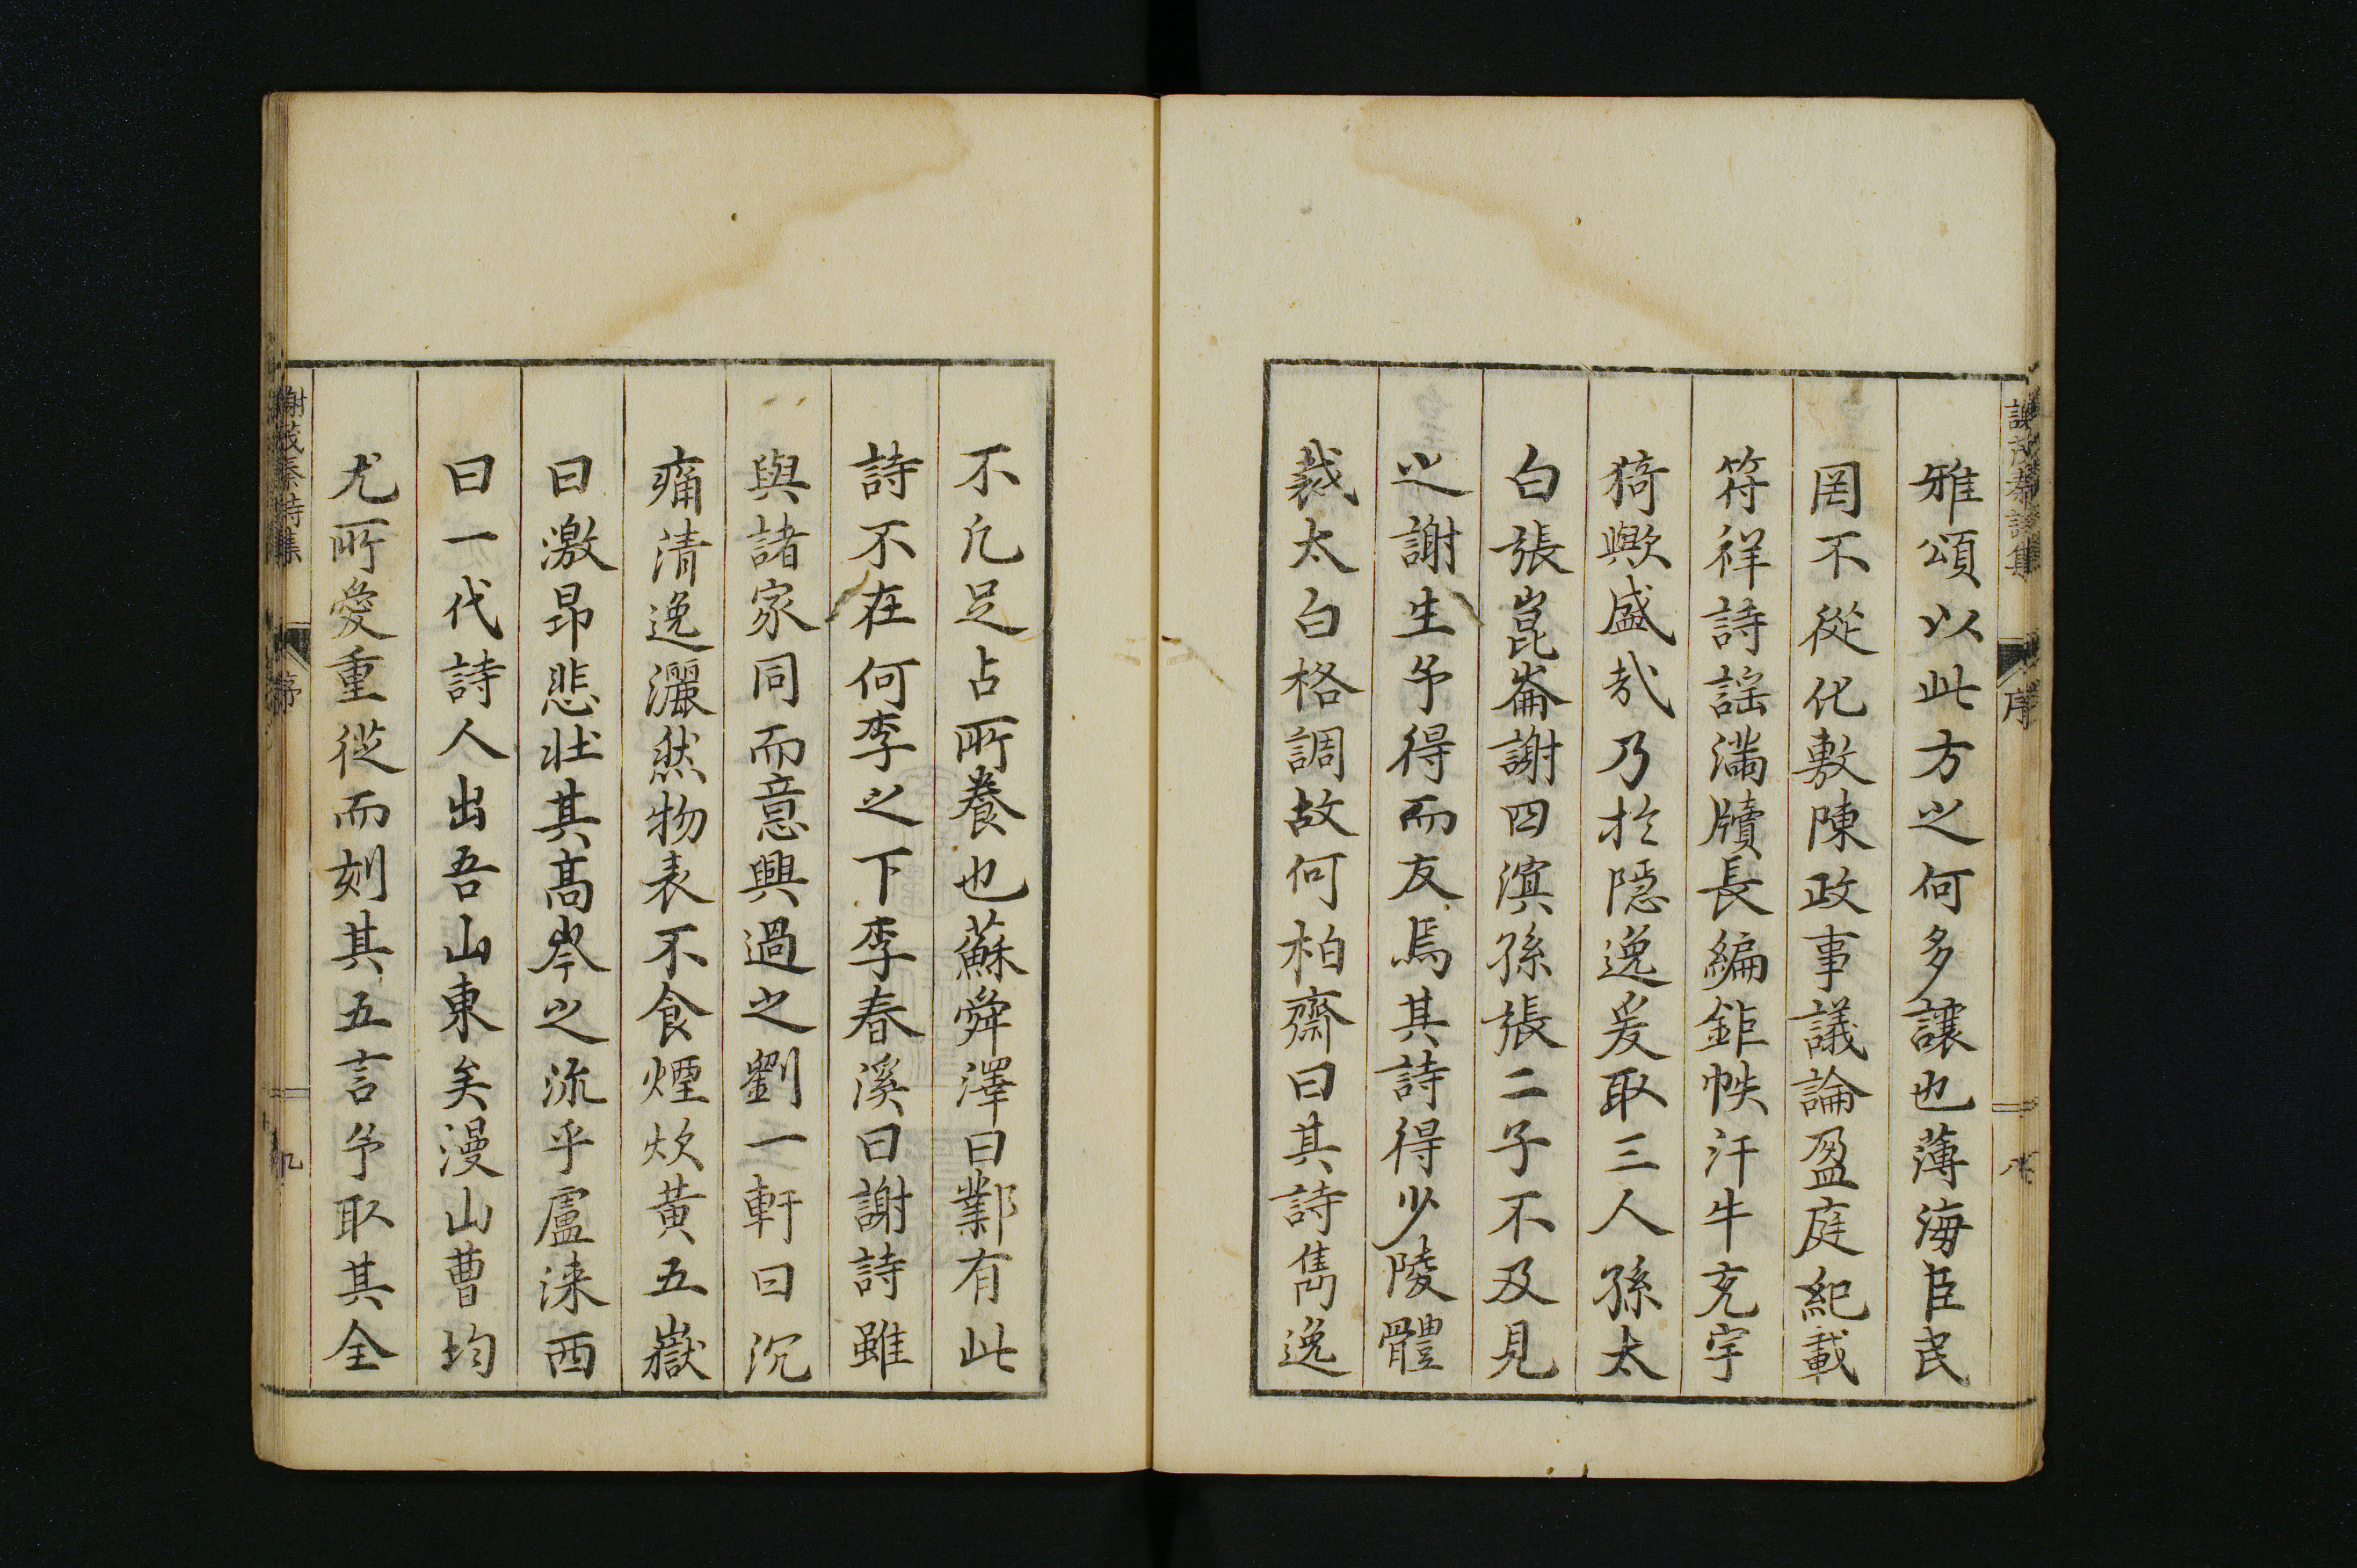 謝茂秦詩集
序
八
雅頌以此方之何多讓也薄海臣民
罔不從化敷陳政事議論盈庭紀載
符祥詩謠滿牘長編鉅帙汗牛充宇
猗歟盛哉乃於隱逸爰取三人孫太
白張崑崙謝四溟孫張二子不及見
之謝生予得而友焉其詩得少陵體
裁太白格調故何柏齋曰其詩雋逸
不凡足占所養也蘇舜澤曰鄴有此
詩不在何李之下李春溪曰謝詩雖
與諸家同而意興過之劉一軒曰沉
痛清逸灑然物表不食煙炊黃五嶽
曰激昂悲壯其高岑之流乎盧淶西
曰一代詩人出吾山東矣漫山曹均
尤所愛重從而刻其五言予取其全
謝茂秦詩集
序
九